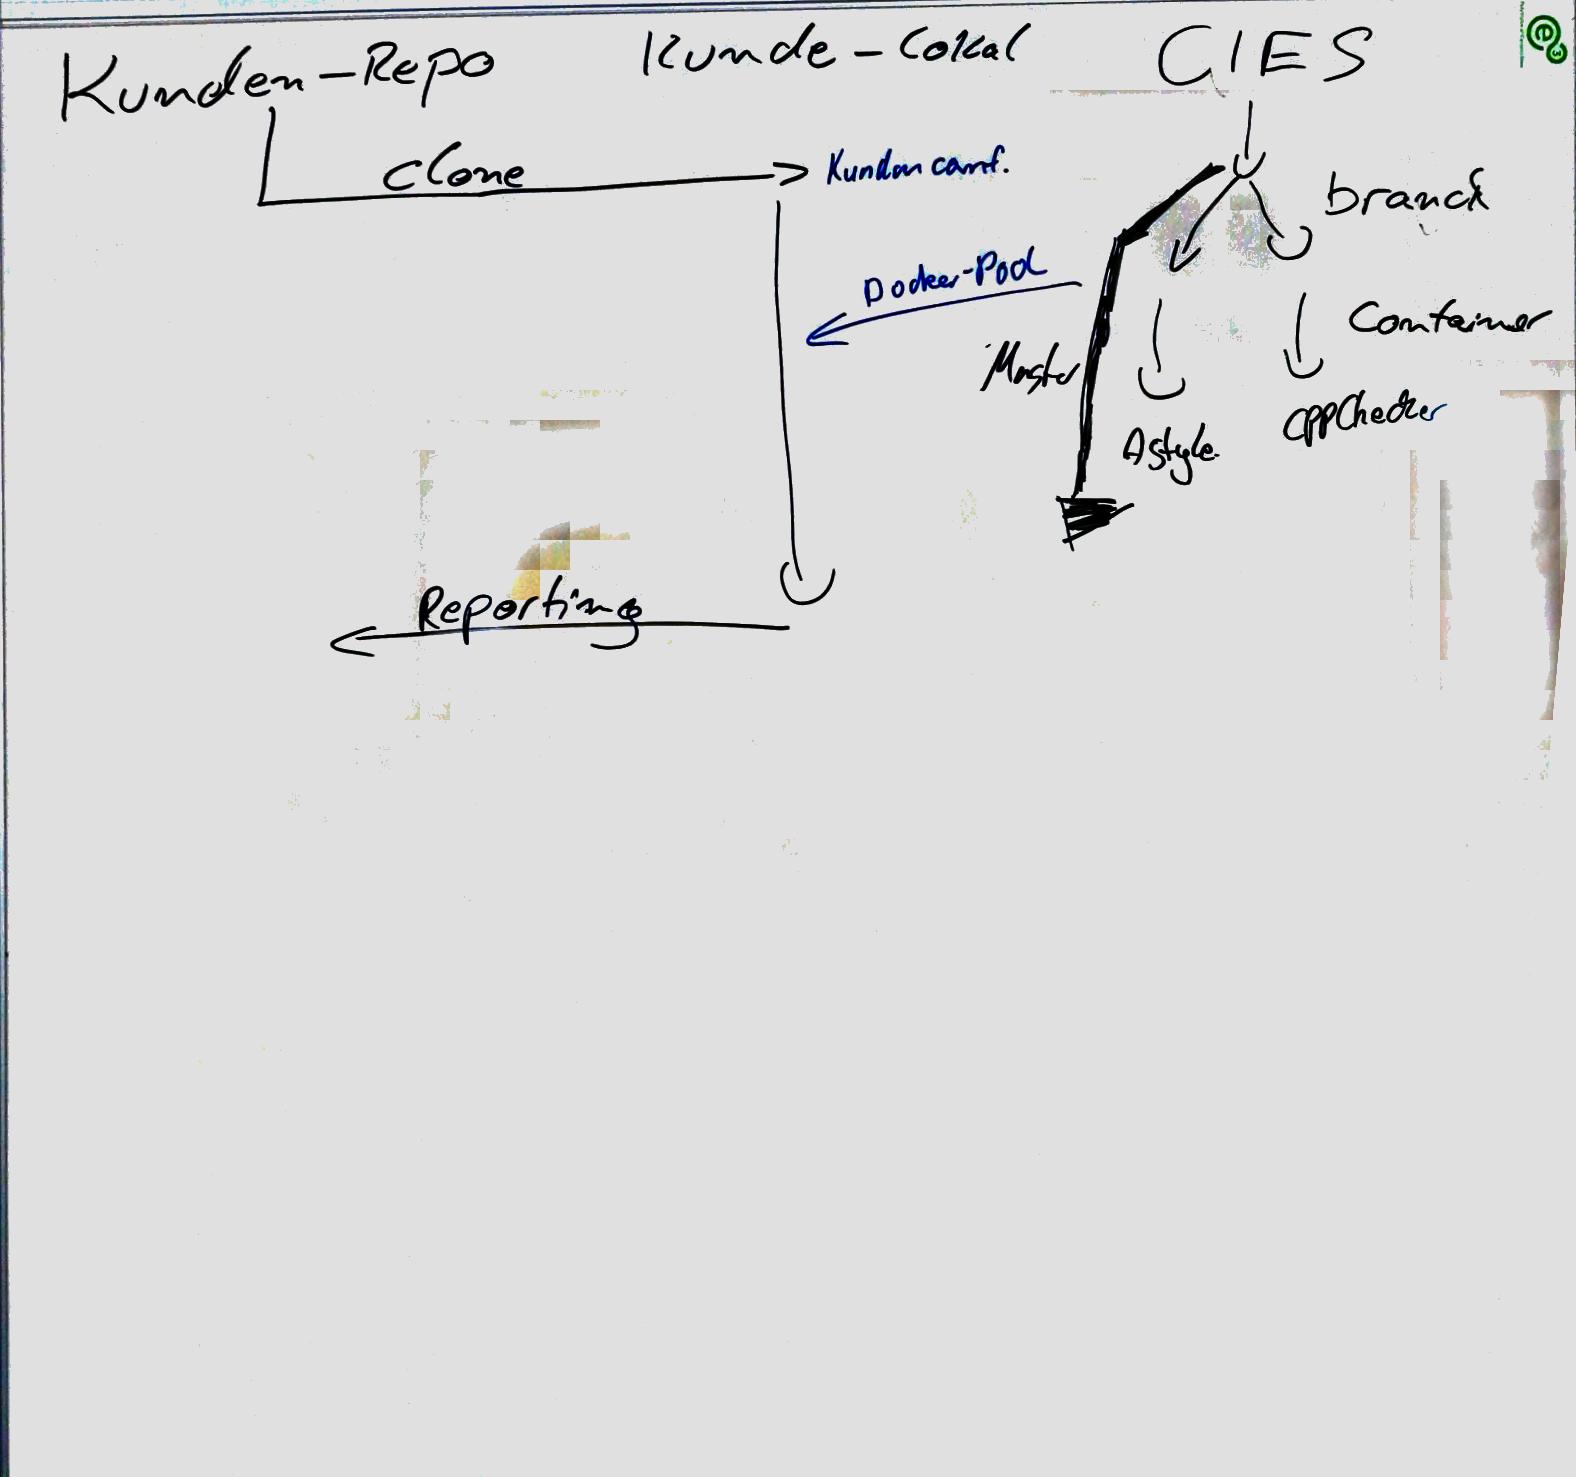 Kunden-Repo
Kunde-Lokal
CIES
clone
Kunden conf.
branch
Docker-Pool
Container
Master
Astyle
CPPChecker
Reporting